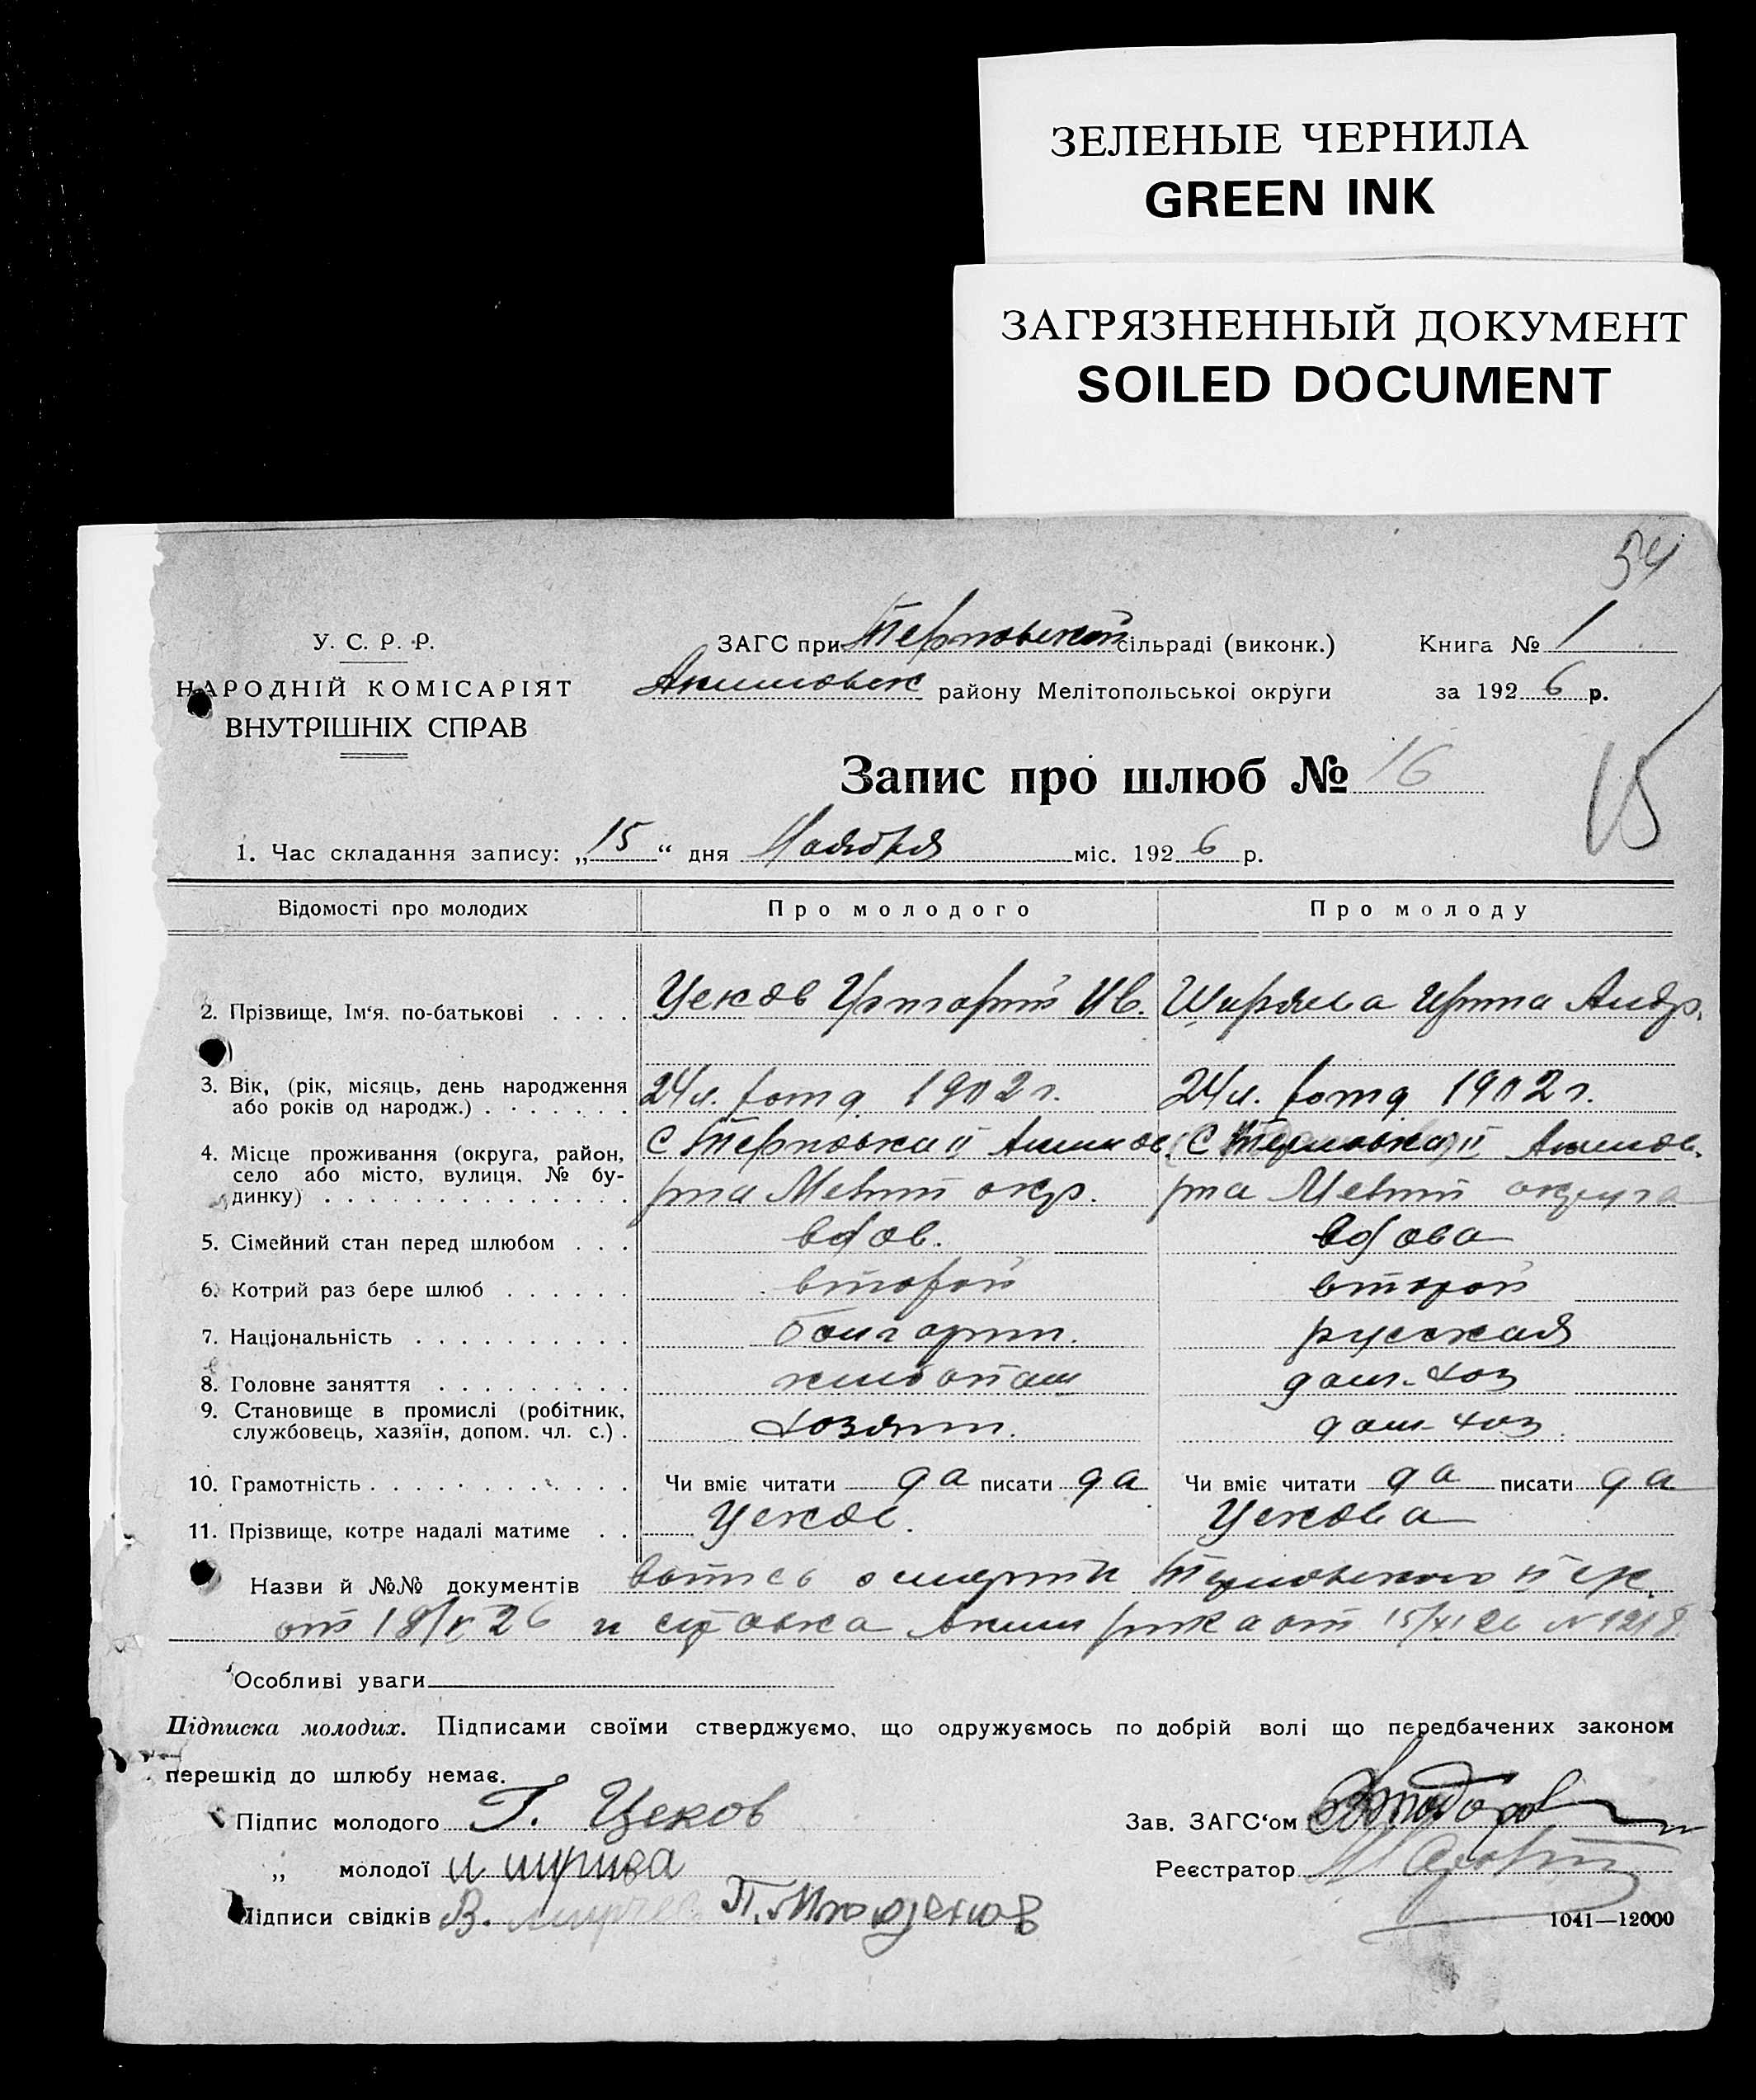 ЗЕЛЕНЫЕ ЧЕРНИЛА
GREEN INK
ЗАГРЯЗНЕННЫЙ ДОКУМЕНТ
SOILED DOCUMENT
54
У. С. Р. Р.
НАРОДНІЙ КОМІСАРІЯТ
ВНУТРІШНІХ СПРАВ
ЗАГС при Терповской сільраді (виконк.) Книга № 1
Акимовск району Мелітопольської округи за 192 6 р.
Запис про шлюб № 16
15
1. Час складання запису: „ 15 “ дня Ноября міс. 192 6 р.
Відомості про молодих Про молодого Про молоду
2. Прізвище, Ім‘я, по-батькові Цеков Григорий Ив. Ширяева Ирина Андр.
3. Вік, (рік, місяць, день народження 24 л. 1902 г. 24 л. 1902 г.
або років од народж.)
4. Місце проживання (округа, район, С Терповка II Акимов. С Терповка II Акимов.
село або місто, вулиця, № бу-
динку) р-на Мелит окр. р-на Мелит округа
5. Сімейний стан перед шлюбом вдов. вдова
6. Котрий раз бере шлюб второй второй
7. Національність болгарин. русская
8. Головне заняття хлебопаш дом-хоз
9. Становище в промислі (робітник, хозяин. дом-хоз
службовець, хазяїн, допом. чл. с.)
10. Грамотність Чи вміє читати да писати да Чи вміє читати да писати да
11. Прізвище, котре надалі матиме Цеков. Цекова
Назви й №№ документів о смерти Терповского
от 18/ 26 и справка Аким рика от 15/XI 26 N 1218
Особливі уваги
Підписка молодих. Підписами своїми стверджуємо, що одружуємось по добрій волі що передбачених законом
перешкід до шлюбу немає.
Підпис молодого Г. Цеков Зав. ЗАГС‘ом
„ молодої Реєстратор
Підписи свідків В. П.
1041—12000